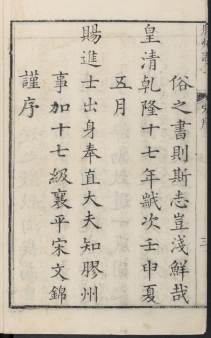 俗之書則斯志豈淺鮮哉
皇清乾隆十七年歲次壬申夏
五月
賜進士出身奉直大夫知膠州
事加十七級襄平宋文錦
謹序